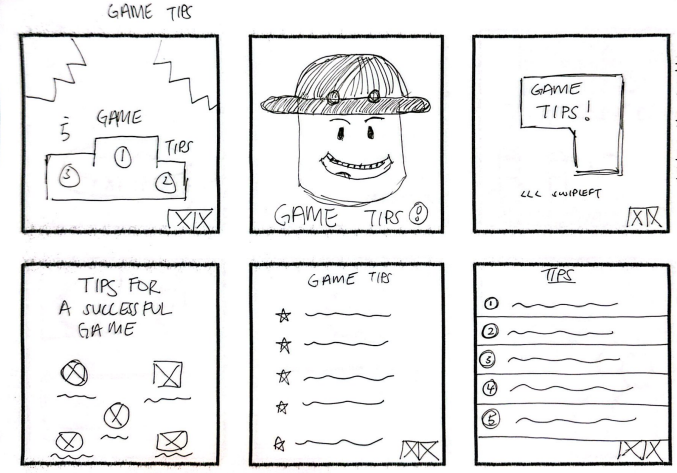 GAME TIPS
5
GAME
TIPS
1
3
2
GAME TIPS!
GAME
TIPS!
<<< SWIPLEFT
TIPS FOR
A SUCCESSFUL
GAME
GAME TIPS
TIPS
1
2
3
4
5